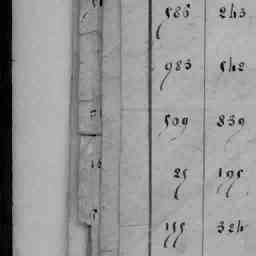 586 243
983 542
509 839
25 195
155 324